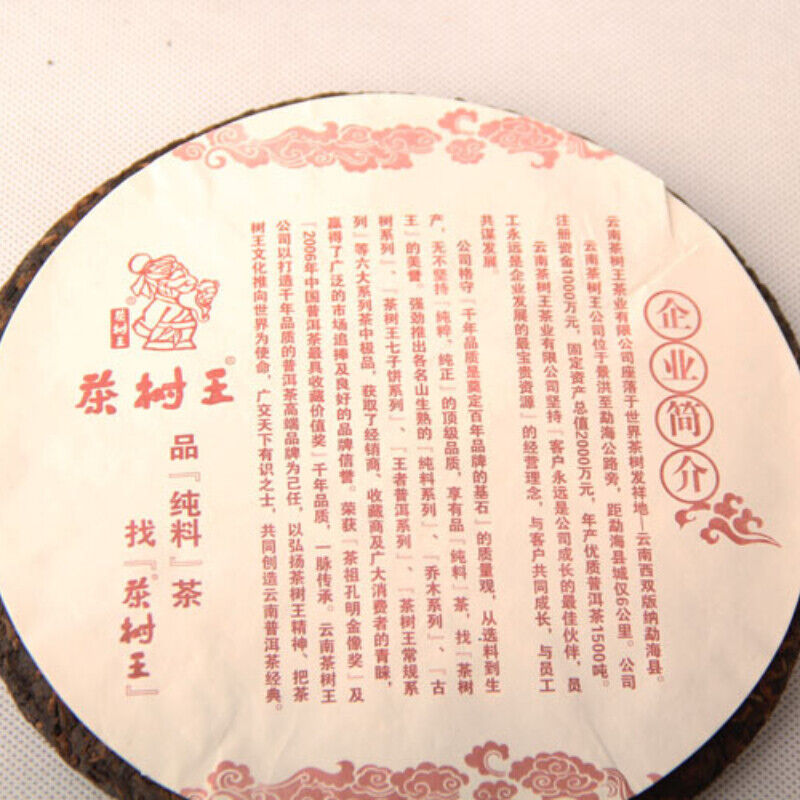 企业简介
云南茶树王茶业有限公司座落于世界茶树发祥地—云南西双版纳勐海县。
云南茶树王公司位于景洪至勐海公路旁，距勐海县城仅6公里。公司
注册资金1000万元，固定资产总值2000万元，年产优质普洱茶1500吨。
云南茶树王茶业有限公司坚持『客户永远是公司成长的最佳伙伴，员
工永远是企业发展的最宝贵资源』的经营理念，与客户共同成长，与员工
共谋发展。
公司恪守『千年品质是奠定百年品牌的基石』的质量观，从选料到生
产，无不坚持『纯粹，纯正』的顶级品质，享有品『纯料』茶，找『茶树
王』的美誉。强劲推出各名山生熟的『纯料系列』、『乔木系列』、『古
树系列』、『茶树王七子饼系列』、『王者普洱系列』、『茶树王常规系
列』等六大系列茶中极品，获取了经销商、收藏商及广大消费者的青睐，
赢得了广泛的市场追捧及良好的品牌信誉。荣获『茶祖孔明金像奖』及
『2006年中国普洱茶最具收藏价值奖』千年品质，一脉传承。云南茶树王
公司以打造千年品质的普洱茶高端品牌为己任，以弘扬茶树王精神、把茶
树王文化推向世界为使命，广交天下有识之士，共同创造云南普洱茶经典。
茶树王
®
茶树王©
品『纯料』茶
找『茶树王』